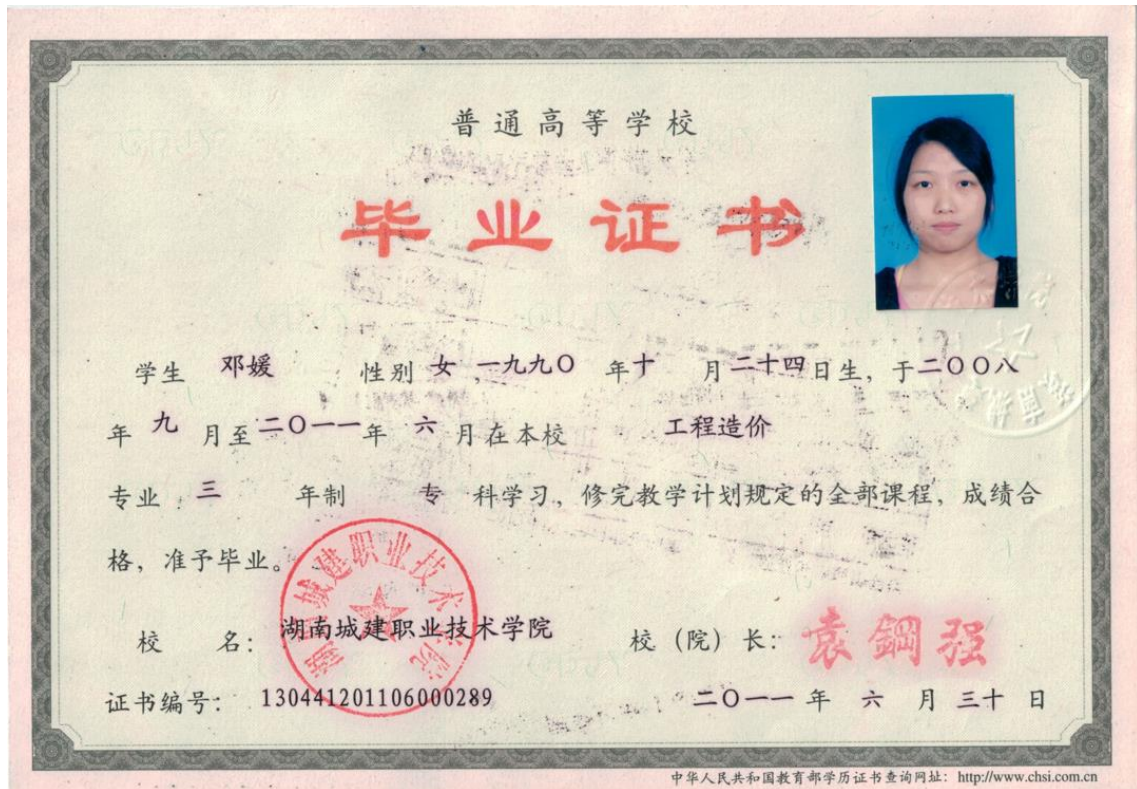 普通高等学校
毕业证书
学生 邓媛 性别 女 ,一九九〇 年十 月二十四日生，于二〇〇八
年 九 月至二〇一一年 六 月在本校 工程造价
专业 三 年制 专 科学习，修完教学计划规定的全部课程，成绩合
格，准予毕业。
湖南城建职业技术学院
校 名：湖南城建职业技术学院 校（院）长：袁鋼强
证书编号：130441201106000289 二〇一一 年 六 月 三十 日
中华人民共和国教育部学历证书查询网址：http://www.chsi.com.cn